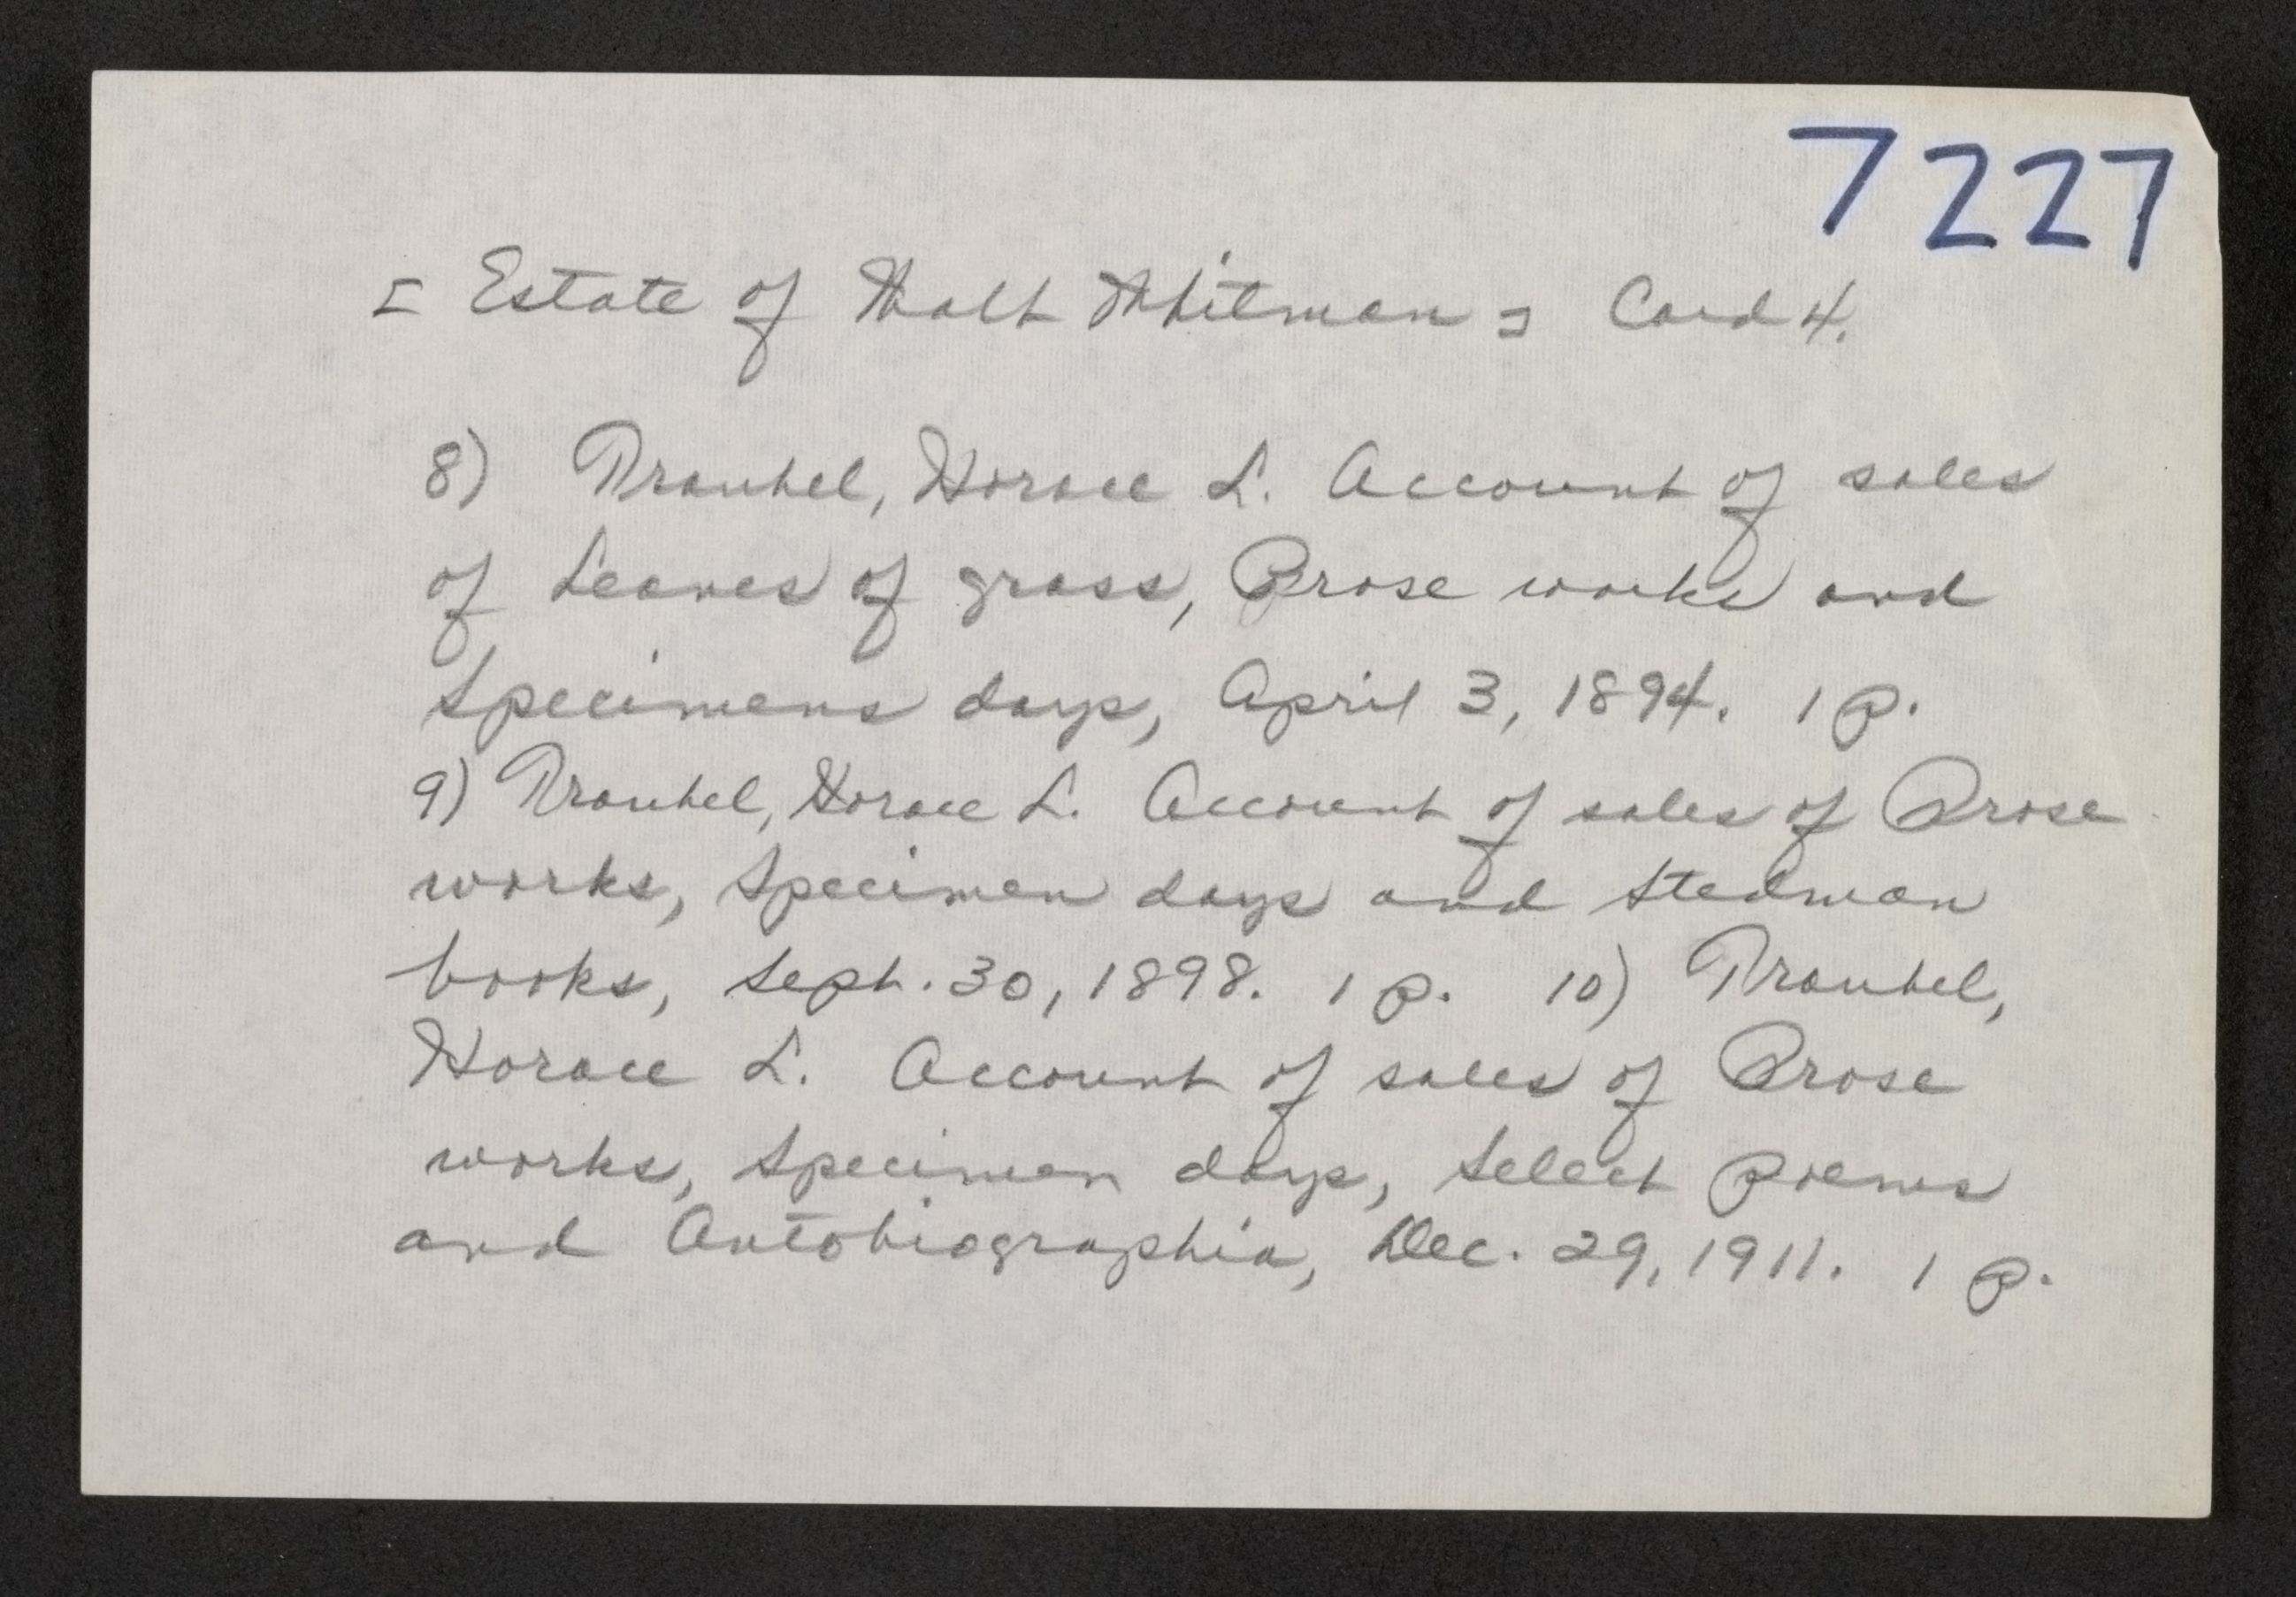 7227
[Estate of Walt Whitman] Card 4.
8) Traubel, Horace L. Account of sales
of Leaves of grass, Prose works and
Specimens days, April 3, 1894. 1 p.
9) Traubel, Horace L. Account of sales of Prose
works, Specimen days and Stedman
books, Sept. 30, 1898. 1 p. 10) Traubel,
Horace L. Account of sales of Prose
works, Specimen days, Select poems
and Autobiographia, Dec. 29, 1911. 1 p.